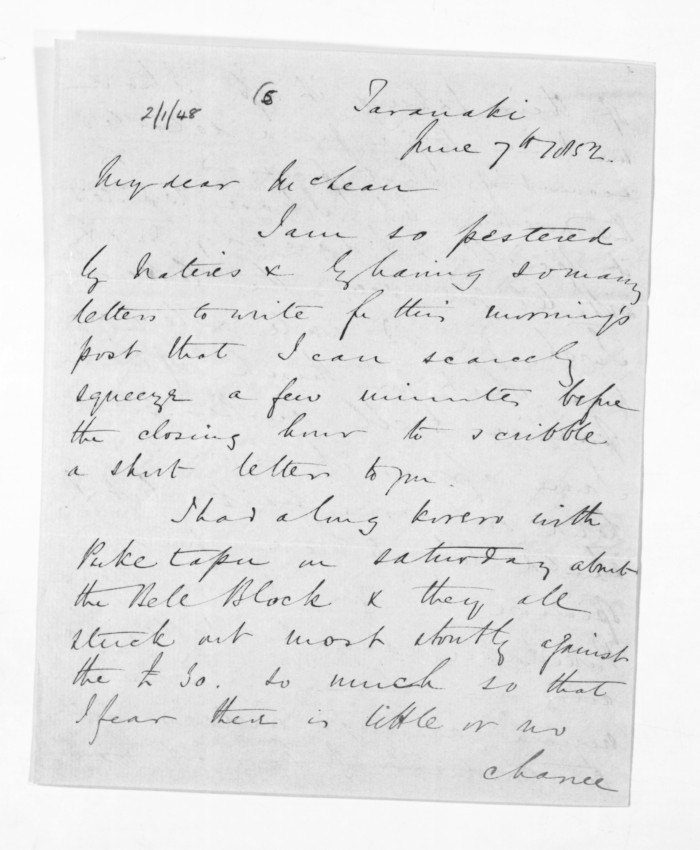 2/1/48
Taranaki
June 7th 1852.
My dear McLean
I am so pestered
by Natives & by having so many
letters to write for this morning's
post that I can scarcely
squeeze a few minutes before
the closing hour to scribble
a short letter to you.
I had a long korero with
Puke tapu on saturday about
the Bell Block & they all
stuck out most stoutly against
the 30. so much so that
I fear there is little or no
chance